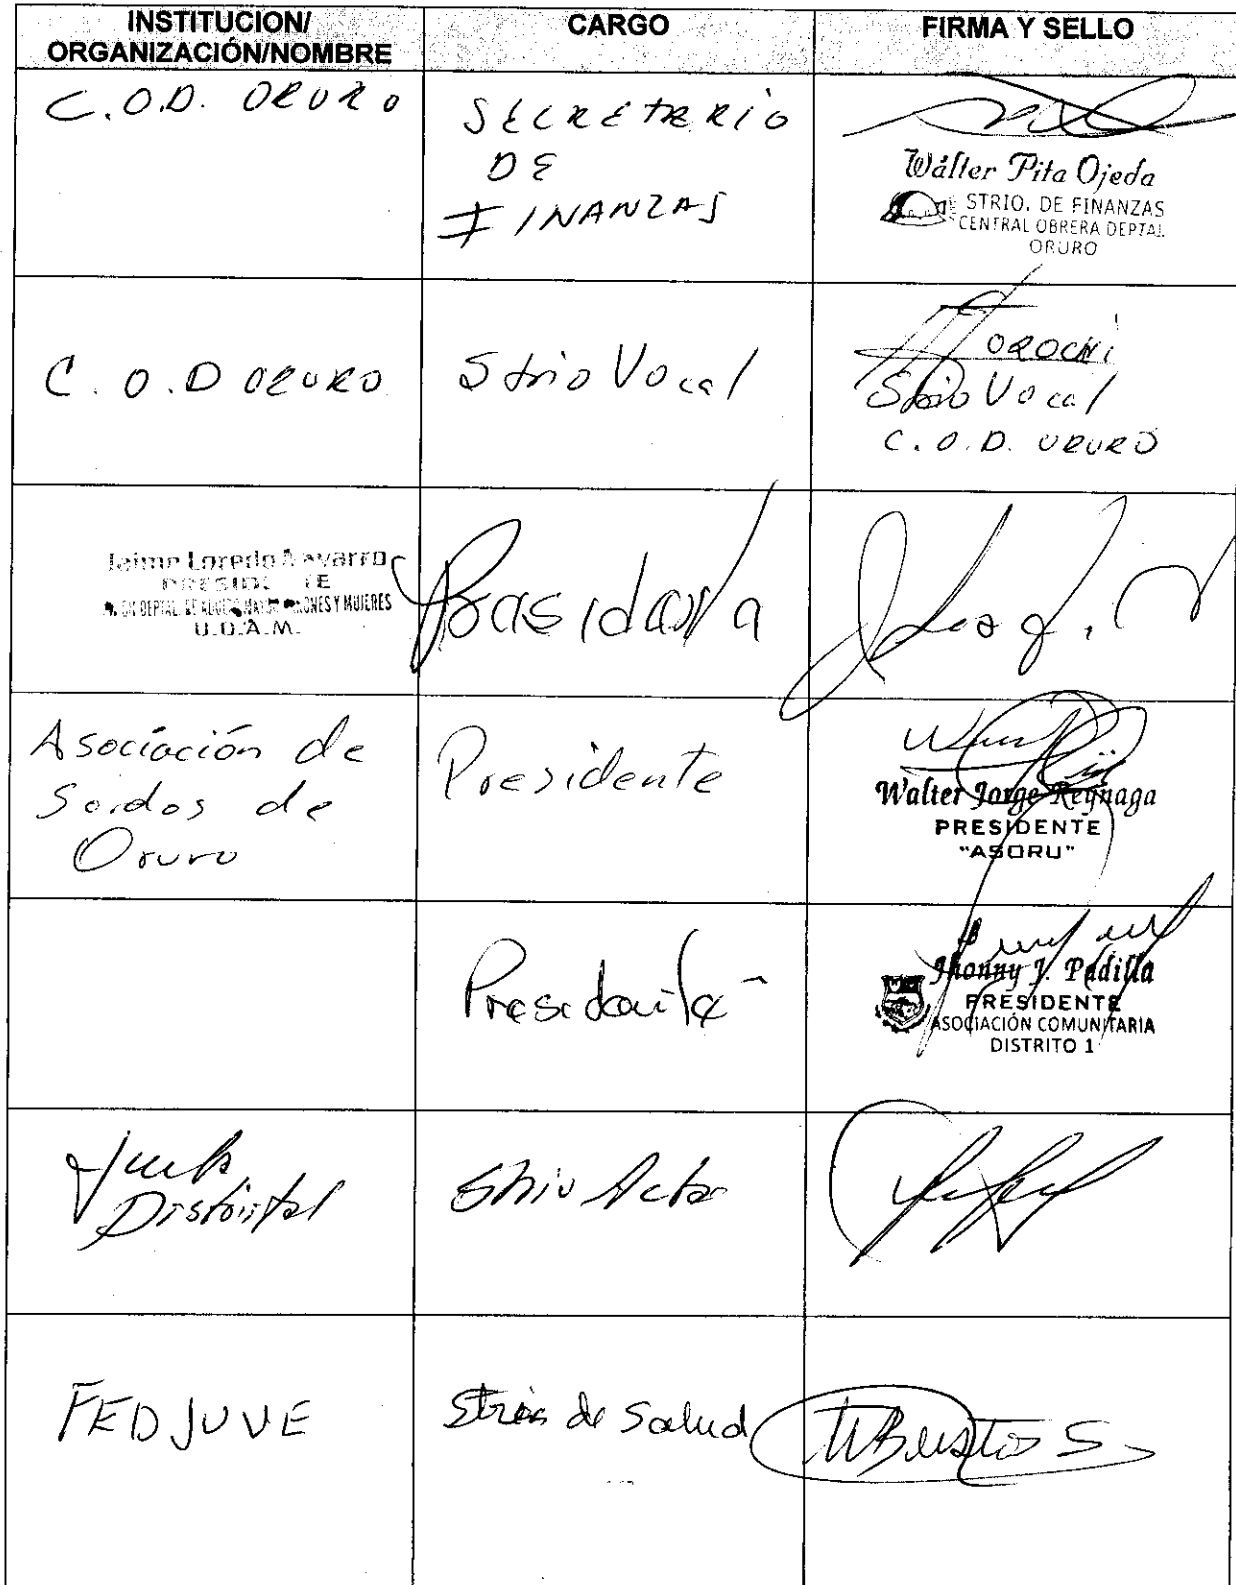 INSTITUCION/
ORGANIZACIÓN/NOMBRE
CARGO
FIRMA Y SELLO
C.O.D. ORURO
SECRETARIO
DE
FINANZAS
Wálter Pita Ojeda
STRIO. DE FINANZAS
CENTRAL OBRERA DEPTAL.
ORURO
C.O.D ORURO
Strio Vocal
OROCHI
Strio Vocal
C.O.D. ORURO
Jaime Loredo Navarro
PRESIDENTE
U.D.A.M.
Presidente
Asociación de
Sordos de
Oruro
Presidente
Walter Jorge Reynaga
PRESIDENTE
"ASORU"
Presidente
Jhonny J. Padilla
PRESIDENTE
ASOCIACIÓN COMUNITARIA
DISTRITO 1
Junta
Distrital
Strio Acta
FEDJUVE
de Salud